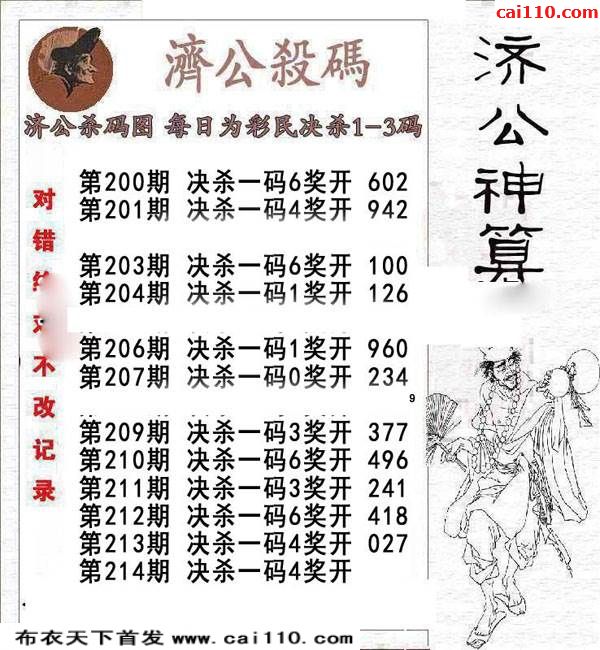 cai110.com
濟公殺碼
济公杀码图 每日为彩民决杀1-3码
第200期 决杀一码6奖开 602
第201期 决杀一码4奖开 942
第203期 决杀一码6奖开 100
第204期 决杀一码1奖开 126
第206期 决杀一码1奖开 960
第207期 决杀一码0奖开 234
9
第209期 决杀一码3奖开 377
第210期 决杀一码6奖开 496
第211期 决杀一码3奖开 241
第212期 决杀一码6奖开 418
第213期 决杀一码4奖开 027
第214期 决杀一码4奖开
对错
不改记录
济公神算
布衣天下首发 www.cai110.com